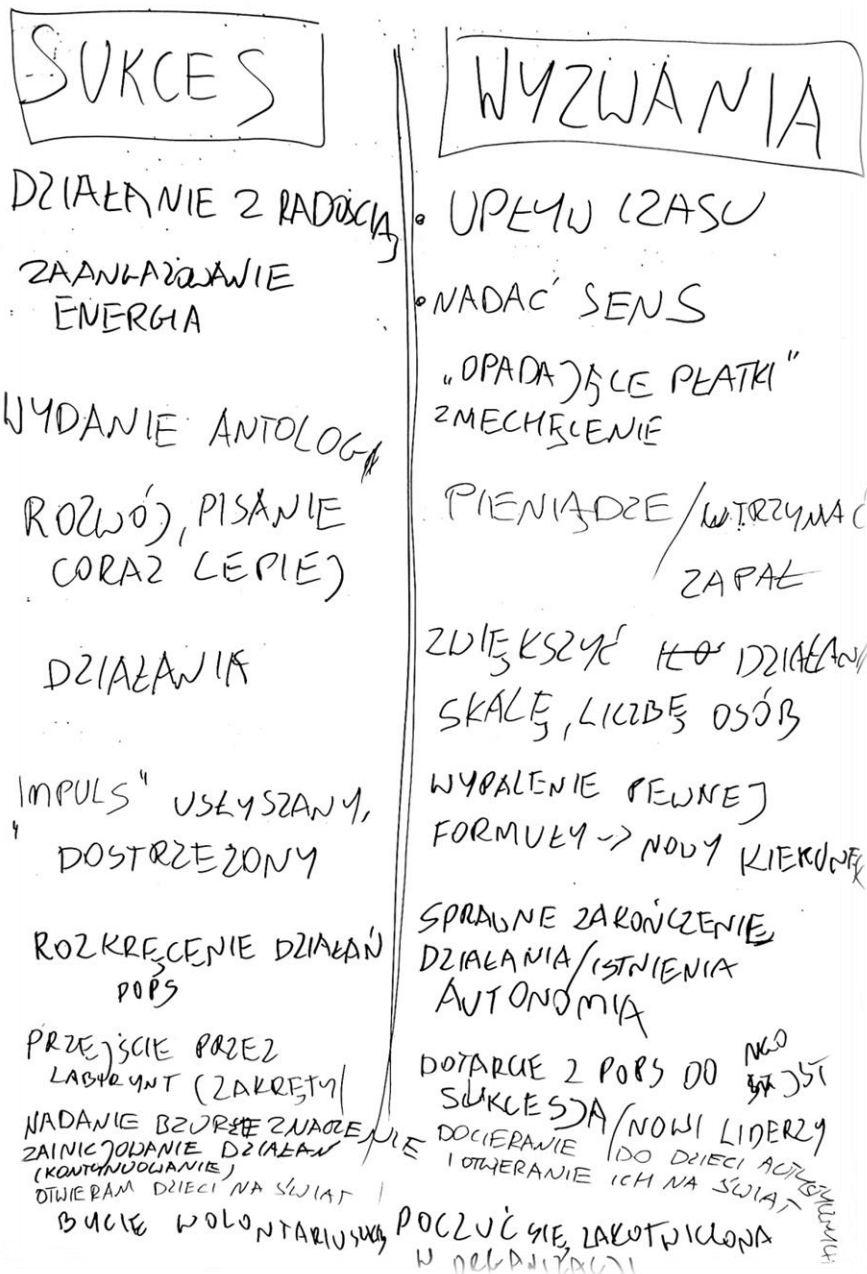 SUKCES
DZIAŁANIE Z RADOŚCIĄ
ZAANGAŻOWANIE
ENERGIA
WYDANIE ANTOLOGI
ROZWÓJ, PISANIE
CORAZ LEPIEJ
DZIAŁANIA
"IMPULS" USŁYSZANY,
DOSTRZEŻONY
ROZKRĘCENIE DZIAŁAŃ
POPS
PRZEJŚCIE PRZEZ
LABIRYNT (ZAKRĘTY)
NADANIE BZURZE ZNACZENIE
ZAINICJOWANIE DZIAŁAŃ
(KONTYNUOWANIE)
OTWIERAM DZIECI NA ŚWIAT
BYCIE WOLONTARIUSZKĄ
WYZWANIA
• UPŁYW CZASU
• NADAĆ SENS
"OPADAJĄCE PŁATKI"
ZNIECHĘCENIE
PIENIĄDZE / UTRZYMAĆ
ZAPAŁ
ZWIĘKSZYĆ DZIAŁANIA
SKALĘ, LICZBĘ OSÓB
WYPALENIE PEWNEJ
FORMUŁY -> NOWY KIERUNEK
SPRAWNE ZAKOŃCZENIE
DZIAŁANIA/ISTNIENIA
AUTONOMIA
DOTARCIE Z POPS DO NGO
JST
SUKCESJA/NOWI LIDERZY
DOCIERANIE DO DZIECI AUTYSTYCZNYCH
I OTWIERANIE ICH NA ŚWIAT
POCZUĆ SIĘ ZAKOTWICZONA
W ORGANIZACJI